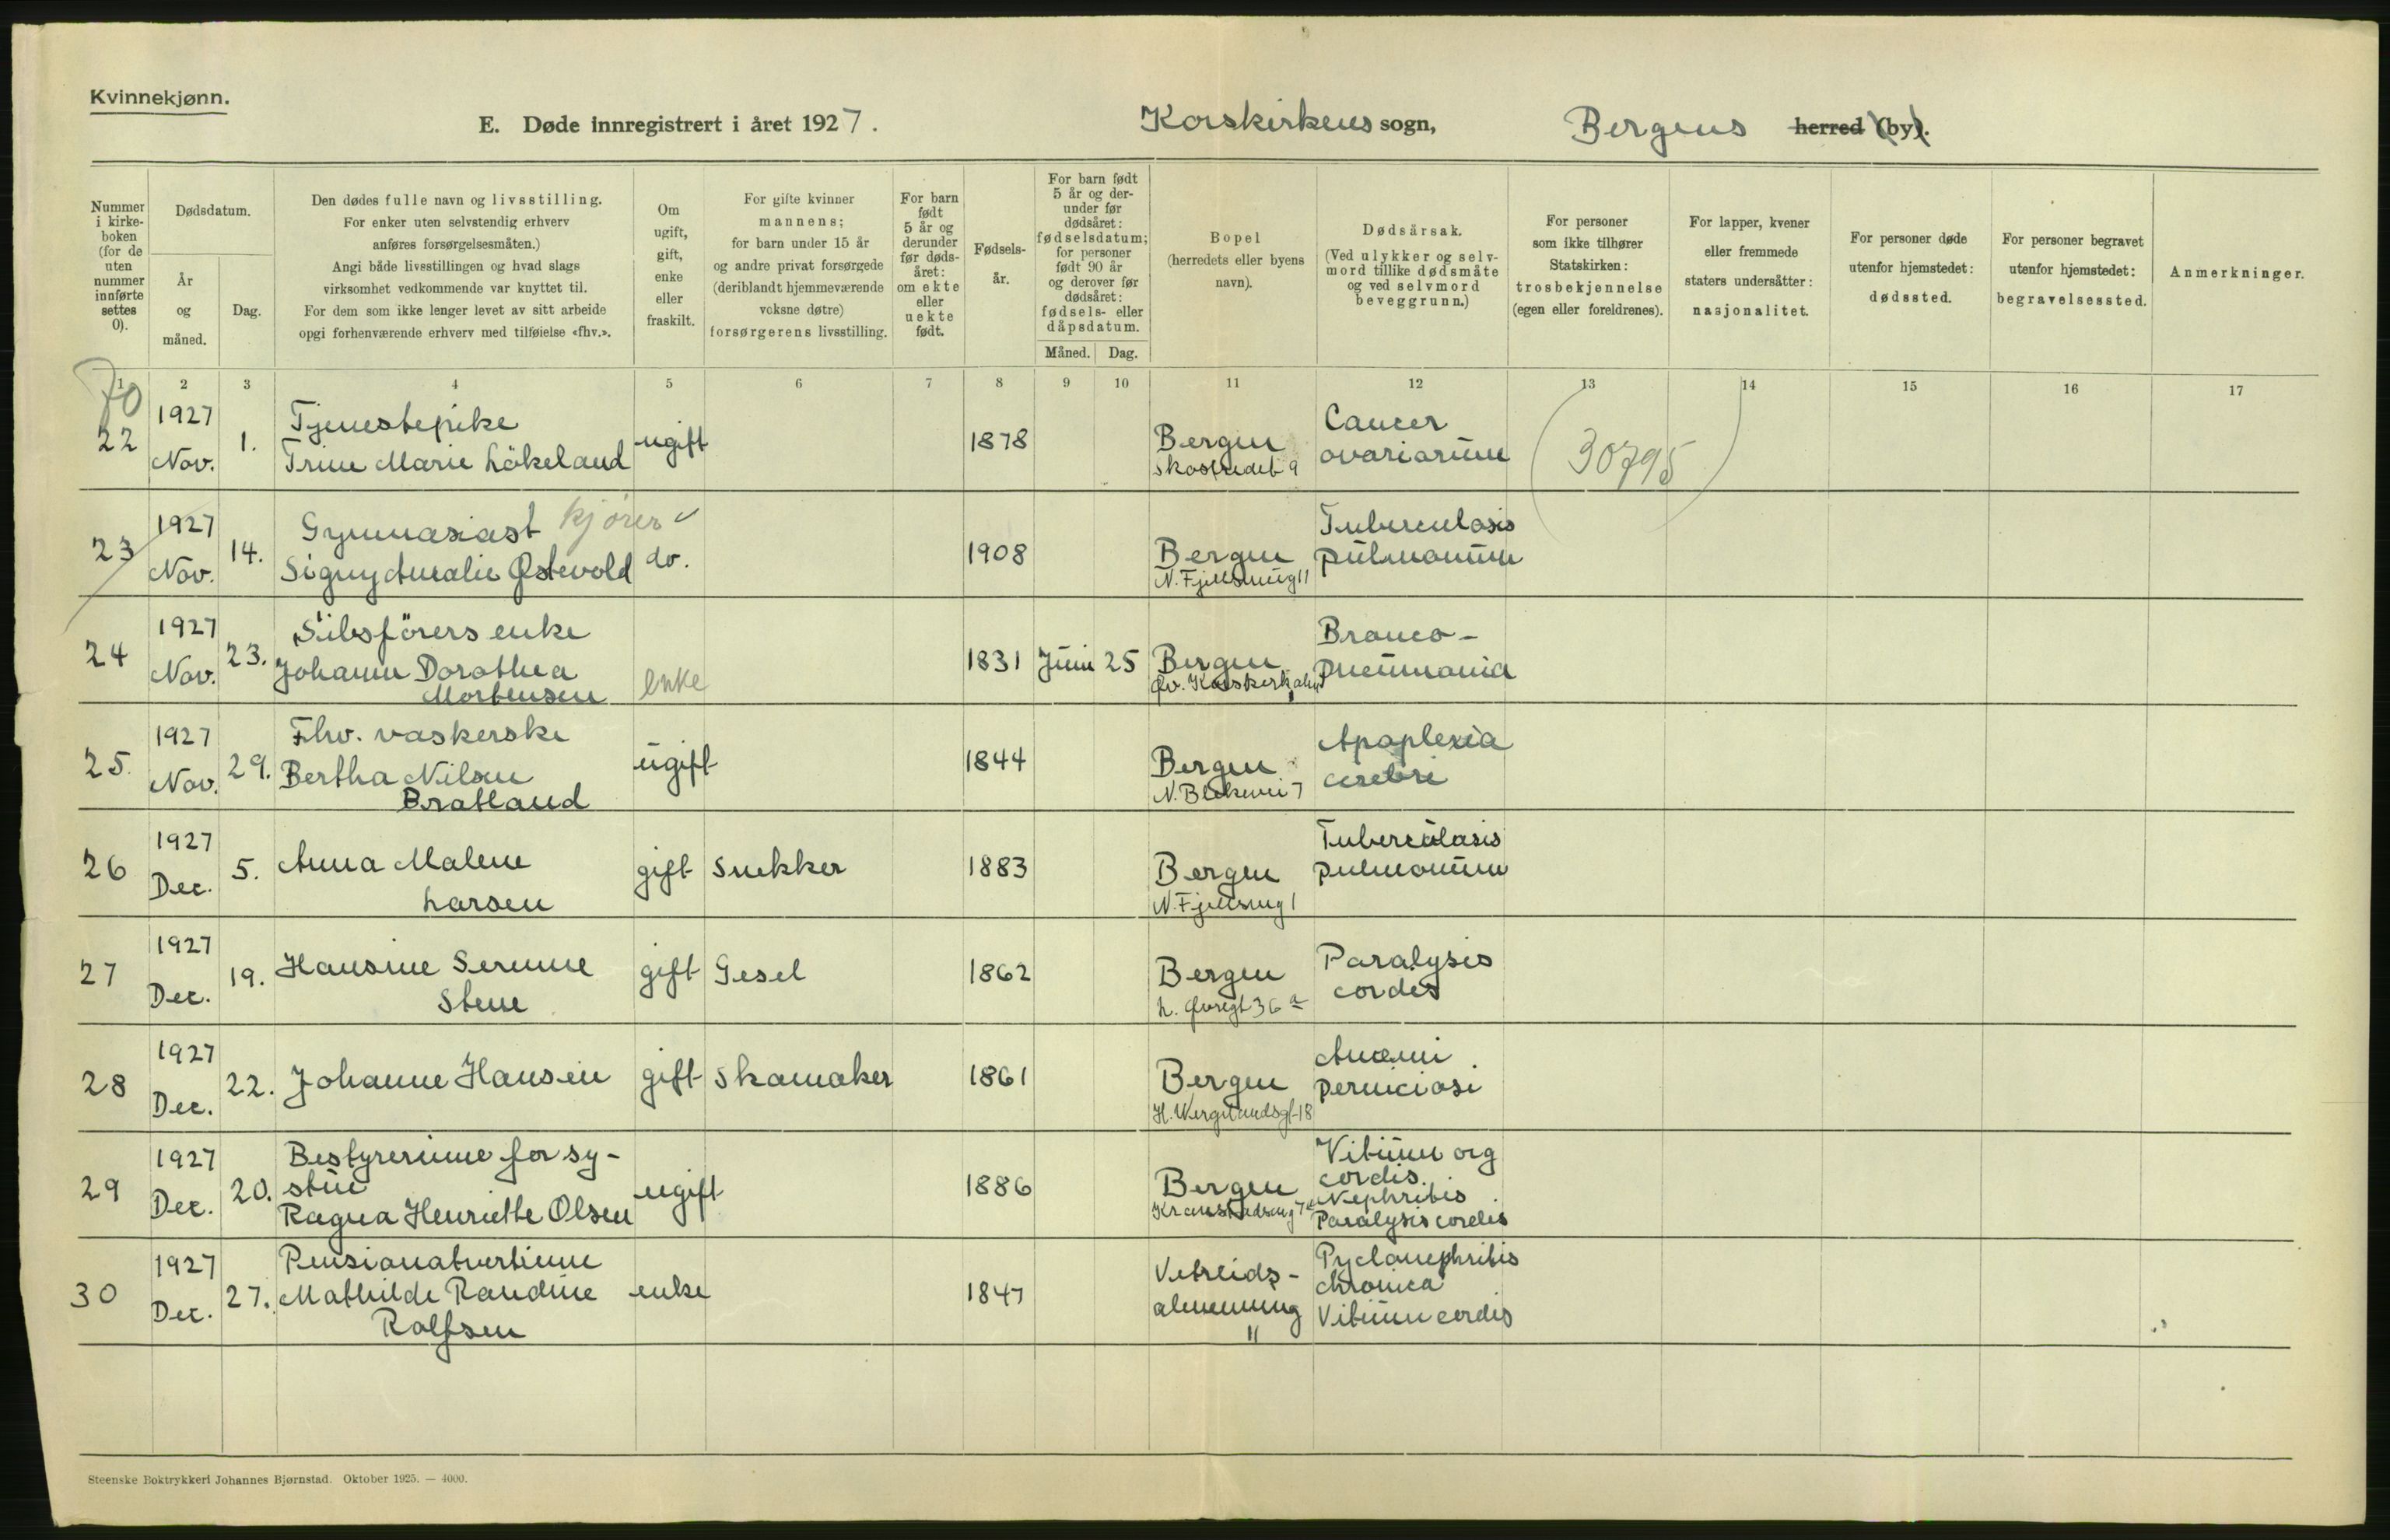 Kvinnekjønn.
E. Døde innregistrert i året 1927. Korskirkens sogn, Bergens herred (by).
Nummer i kirke-boken (for de uten nummer innførte settes 0).
Dødsdatum.
År og måned.
Dag.
Den dødes fulle navn og livsstilling.
For enker uten selvstendig erhverv
anføres forsørgelsesmåten.)
Angi både livsstillingen og hvad slags
virksomhet vedkommende var knyttet til.
For dem som ikke lenger levet av sitt arbeide
opgi forhenværende erhverv med tilføielse «fhv.».
Om ugift, gift, enke eller fraskilt.
For gifte kvinner
mannens;
for barn under 15 år
og andre privat forsørgede
(deriblandt hjemmeværende
voksne døtre)
forsørgerens livsstilling.
For barn født 5 år og derunder før døds-året: om ekte eller uekte født.
Fødsels-år.
For barn født 5 år og der-under før dødsåret: fødselsdatum; for personer født 90 år og derover før dødsåret: fødsels- eller dåpsdatum.
Måned. Dag.
Bopel
(herredets eller byens
navn).
Dødsårsak.
(Ved ulykker og selv-
mord tillike dødsmåte
og ved selvmord
beveggrunn.)
For personer
som ikke tilhører
Statskirken:
trosbekjennelse
(egen eller foreldrenes).
For lapper, kvener
eller fremmede
staters undersåtter:
nasjonalitet.
For personer døde
utenfor hjemstedet:
dødssted.
For personer begravet
utenfor hjemstedet:
begravelsessted.
Anmerkninger.
1 2 3 4 5 6 7 8 9 10 11 12 13 14 15 16 17
70
22 1927 Nov. 1. Tjenestepike
Trine Marie Lökeland ugift 1878 Bergen
Skostredet 9
Cancer
ovariarum
(30795)
23 1927 Nov. 14. Gymnasiast kjører
Signy Amalie Østevold do. 1908 Bergen
N. Fjellsmug 11
Tuberculosis
pulmonum
24 1927 Nov. 23. Skibsförers enke
Johanne Dorothea
Mortensen enke 1831 Juni 25 Bergen
Øv. Korskirkalm
Bronco-
pneumonia
25. 1927 Nov. 29. Fhv. vaskerske
Bertha Nilsen
Bratland ugift 1844 Bergen
N. Blekevei 7
Apoplexia
cerebri
26 1927 Dec. 5. Anna Malene
Larsen gift Snekker 1883 Bergen
N. Fjellsmug 1
Tuberculosis
pulmonum
27 1927 Dec. 19. Hansine Serine
Stene gift Gesel 1862 Bergen
L. Øvregt 36 a
Paralysis
cordis
28 1927 Dec. 22. Johanne Hansen gift Skomaker 1861 Bergen
H. Wergelandsgt 18
Anæmi
perniciosi
29 1927 Dec. 20. Bestyrerinne for sy-
stue
Ragna Henriette Olsen ugift 1886 Bergen
Vitium org
cordis.
Nephritis
Paralysis cordis
30 1927 Dec. 27. Pensionatvertinne
Mathilde Randine
Rolfsen enke 1847 Vetrlids-
almenning
11
Pyelonephritis
chronica
Vitium cordis
Steenske Boktrykkeri Johannes Bjørnstad. Oktober 1925. — 4000.